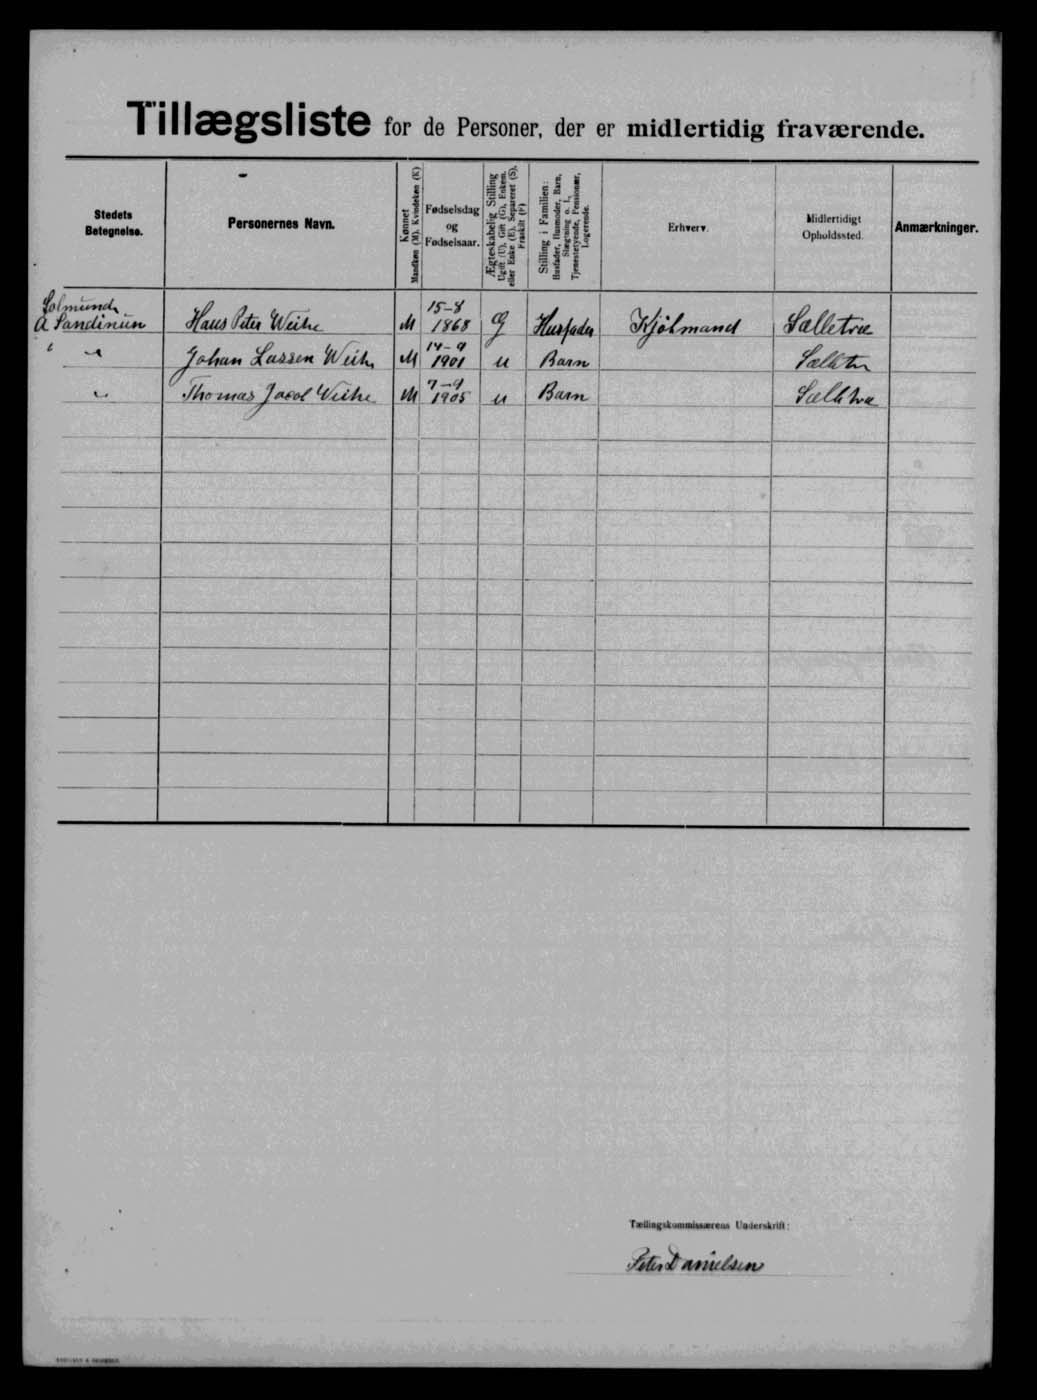 Tillægsliste for de Personer, der er midlertidig fraværende.
Stedets Betegnelse.
Personernes Navn.
Kønnet
Mandkøn (M). Kvindekøn (K)
Fødselsdag
og
Fødselsaar.
Ægteskabelig Stilling
Ugift (U), Gift (G), Enkem.
eller Enke (E), Separeret (S),
Fraskilt (F)
Stilling i Familien:
Husfader, Husmoder, Barn,
Slægtning o. l.,
Tjenestetyende, Pensionær,
Logerende.
Erhverv.
Midlertidigt
Opholdssted.
Anmærkninger.
Solmunde
A Sandinum Hans Peter Weihe M 15-8 1868 G Husfader Kjøbmand Selletræ
" Johan Lassen Weihe M 14-9 1901 u Barn
" Thomas Jacob Weihe M 7-9 1905 u Barn
Tællingskommissærens Underskrift:
Peter Danielsen